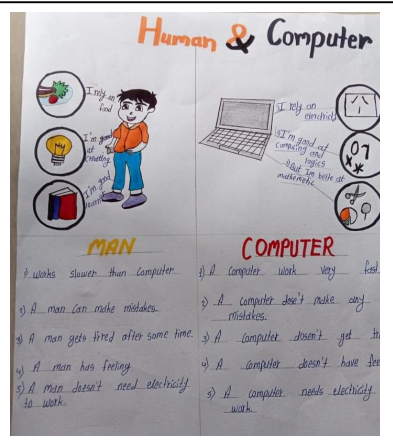 Human & Computer
I rely on
food
I'm good
at
creatting
I'm good
learner
I rely on
electricity
I'm good at
computing and
logics
But Im belte at
mathemetic
MAN
1) works slower than computer
2) A man can make mistakes.
3) A man gets tired after some time.
4) A man has feeling
5) A man doesn't need electricity
to work.
COMPUTER
1) A computer work very fast
2) A computer dose't make any
mistakes.
3) A computer doesn't get
4) A computer doesn't have fee
5) A computer needs electricity
work.